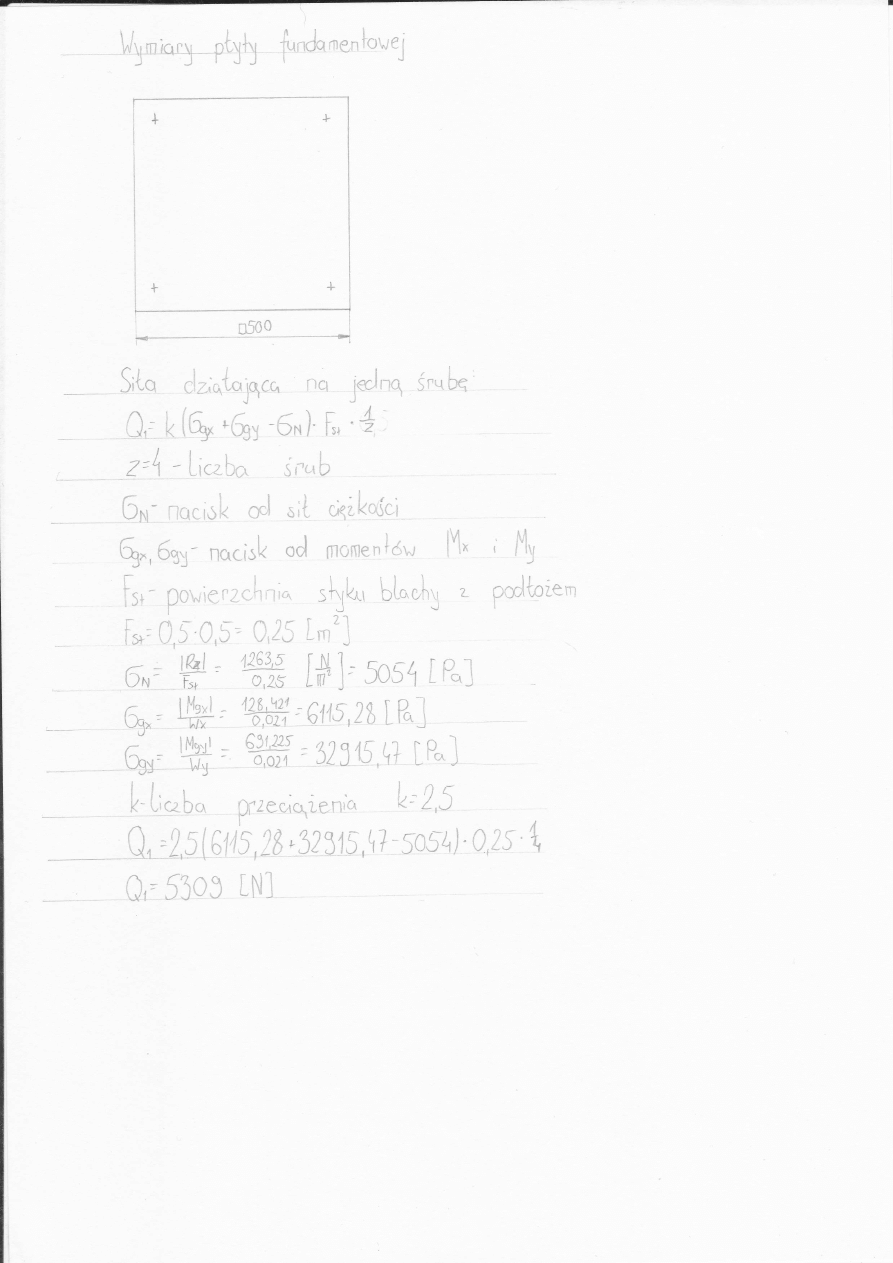 Wymiary płyty fundamentowej
□500
Siła działająca na jedną śrubę
Q₁=k(σgx+σgy-σN)·Fst·1/z
z=4-liczba śrub
σN-nacisk od sił ciężkości
σgx,σgy-nacisk od momentów Mx i My
Fst-powierzchnia styku blachy z podłożem
Fst=0,5·0,5=0,25 [m²]
σN=|Rz|/Fst=1263,5/0,25 [N/m²]=5054 [Pa]
σgx=|Mgx|/Wx=128,421/0,021=6115,28 [Pa]
σgy=|Mgy|/Wy=691,225/0,021=32915,47 [Pa]
k-liczba przeciążenia k=2,5
Q₁=2,5(6115,28+32915,47-5054)·0,25·1/4
Q₁=5309 [N]